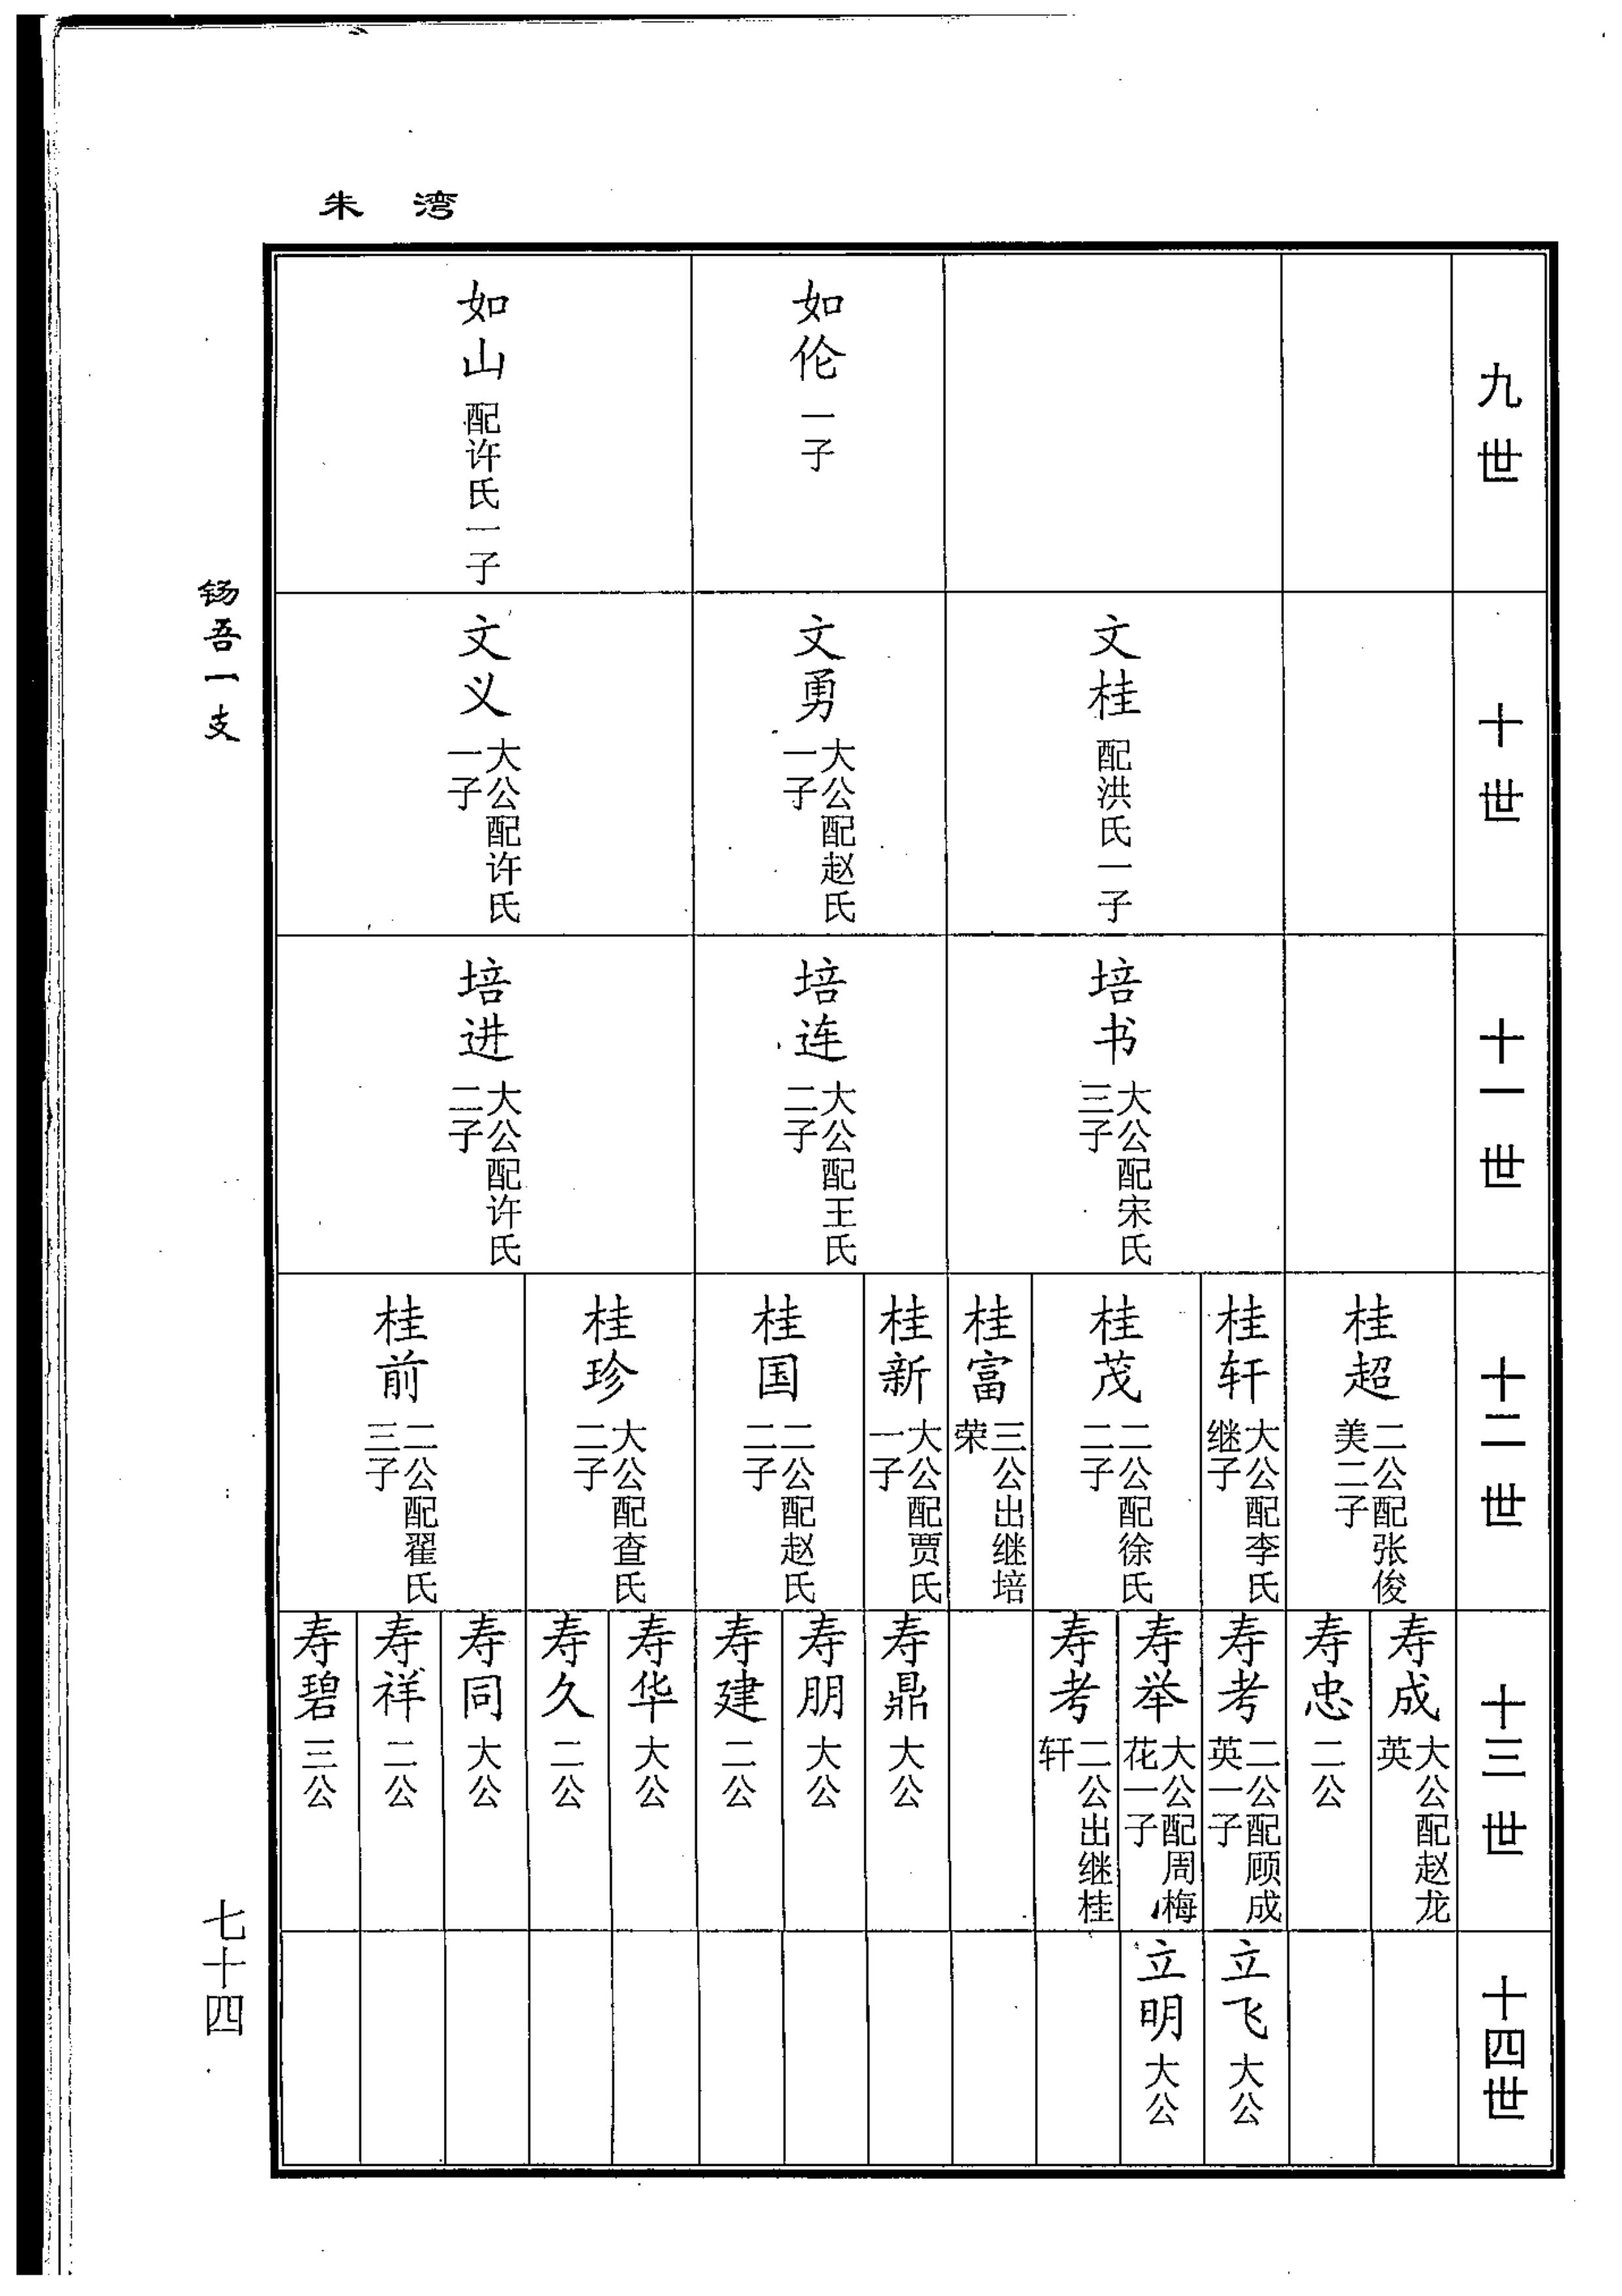 朱湾
钖吾一支
七十四
九世
如伦 一子
如山 配许氏一子
十世
文桂 配洪氏一子
文勇 大公配赵氏
一子
文义 大公配许氏
一子
十一世
培书 大公配宋氏
三子
培连 大公配王氏
二子
培进 大公配许氏
二子
十二世
桂超 二公配张俊
美二子
桂轩 大公配李氏
继子
桂茂 二公配徐氏
二子
桂富 三公出继培
荣
桂新 大公配贾氏
一子
桂国 二公配赵氏
二子
桂珍 大公配查氏
二子
桂前 二公配翟氏
三子
十三世
寿成 大公配赵龙
英
寿忠 二公
寿考 二公配顾成
英一子
寿举 大公配周梅
花一子
寿考 二公出继桂
轩
寿鼎 大公
寿朋 大公
寿建 二公
寿华 大公
寿久 二公
寿同 大公
寿祥 二公
寿碧 三公
十四世
立飞 大公
立明 大公